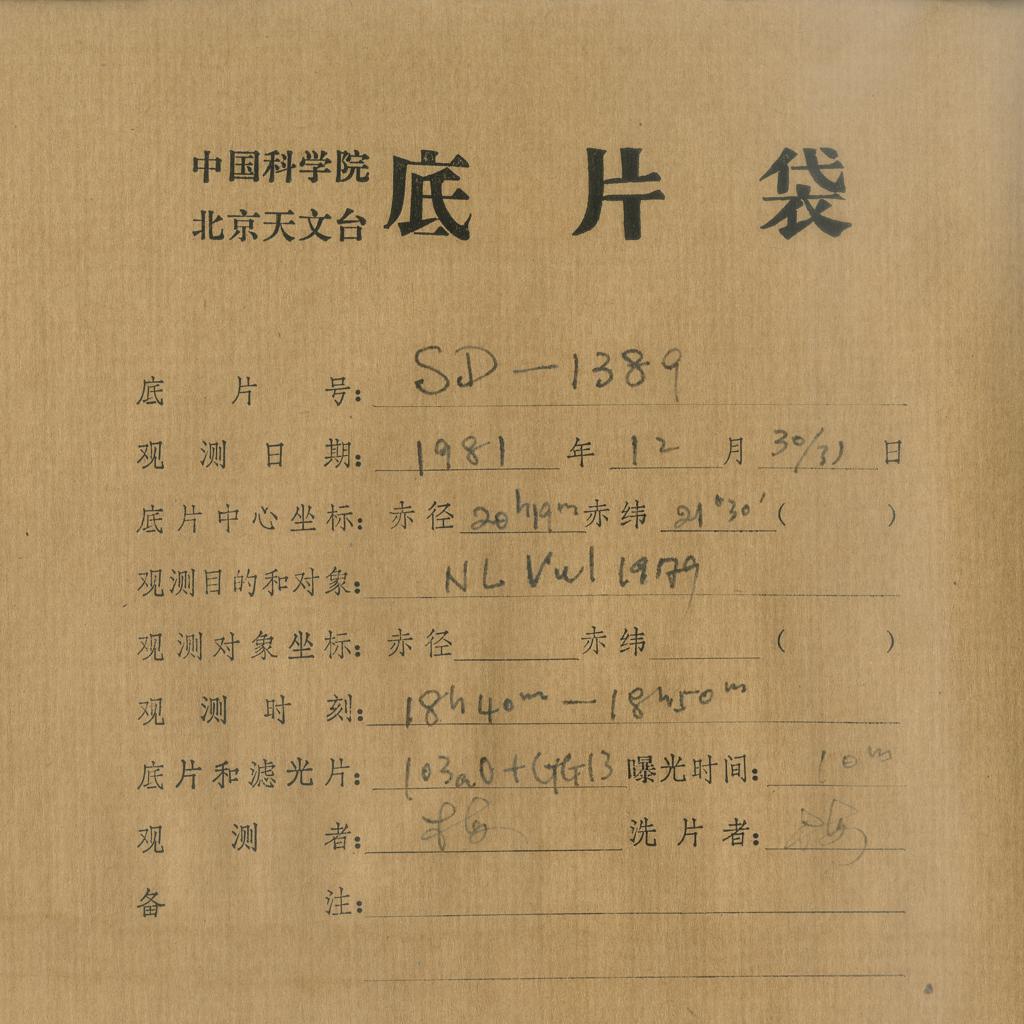 中国科学院
北京天文台
底片袋
底片号：SD-1389
观测日期：1981年12月30/31日
底片中心坐标：赤径20h19m赤纬21°30′( )
观测目的和对象：NL Vul 1979
观测对象坐标：赤径 赤纬 ( )
观测时刻：18h40m—18h50m
底片和滤光片：103aO+GG13曝光时间：10m
观测者： 洗片者：
备注：